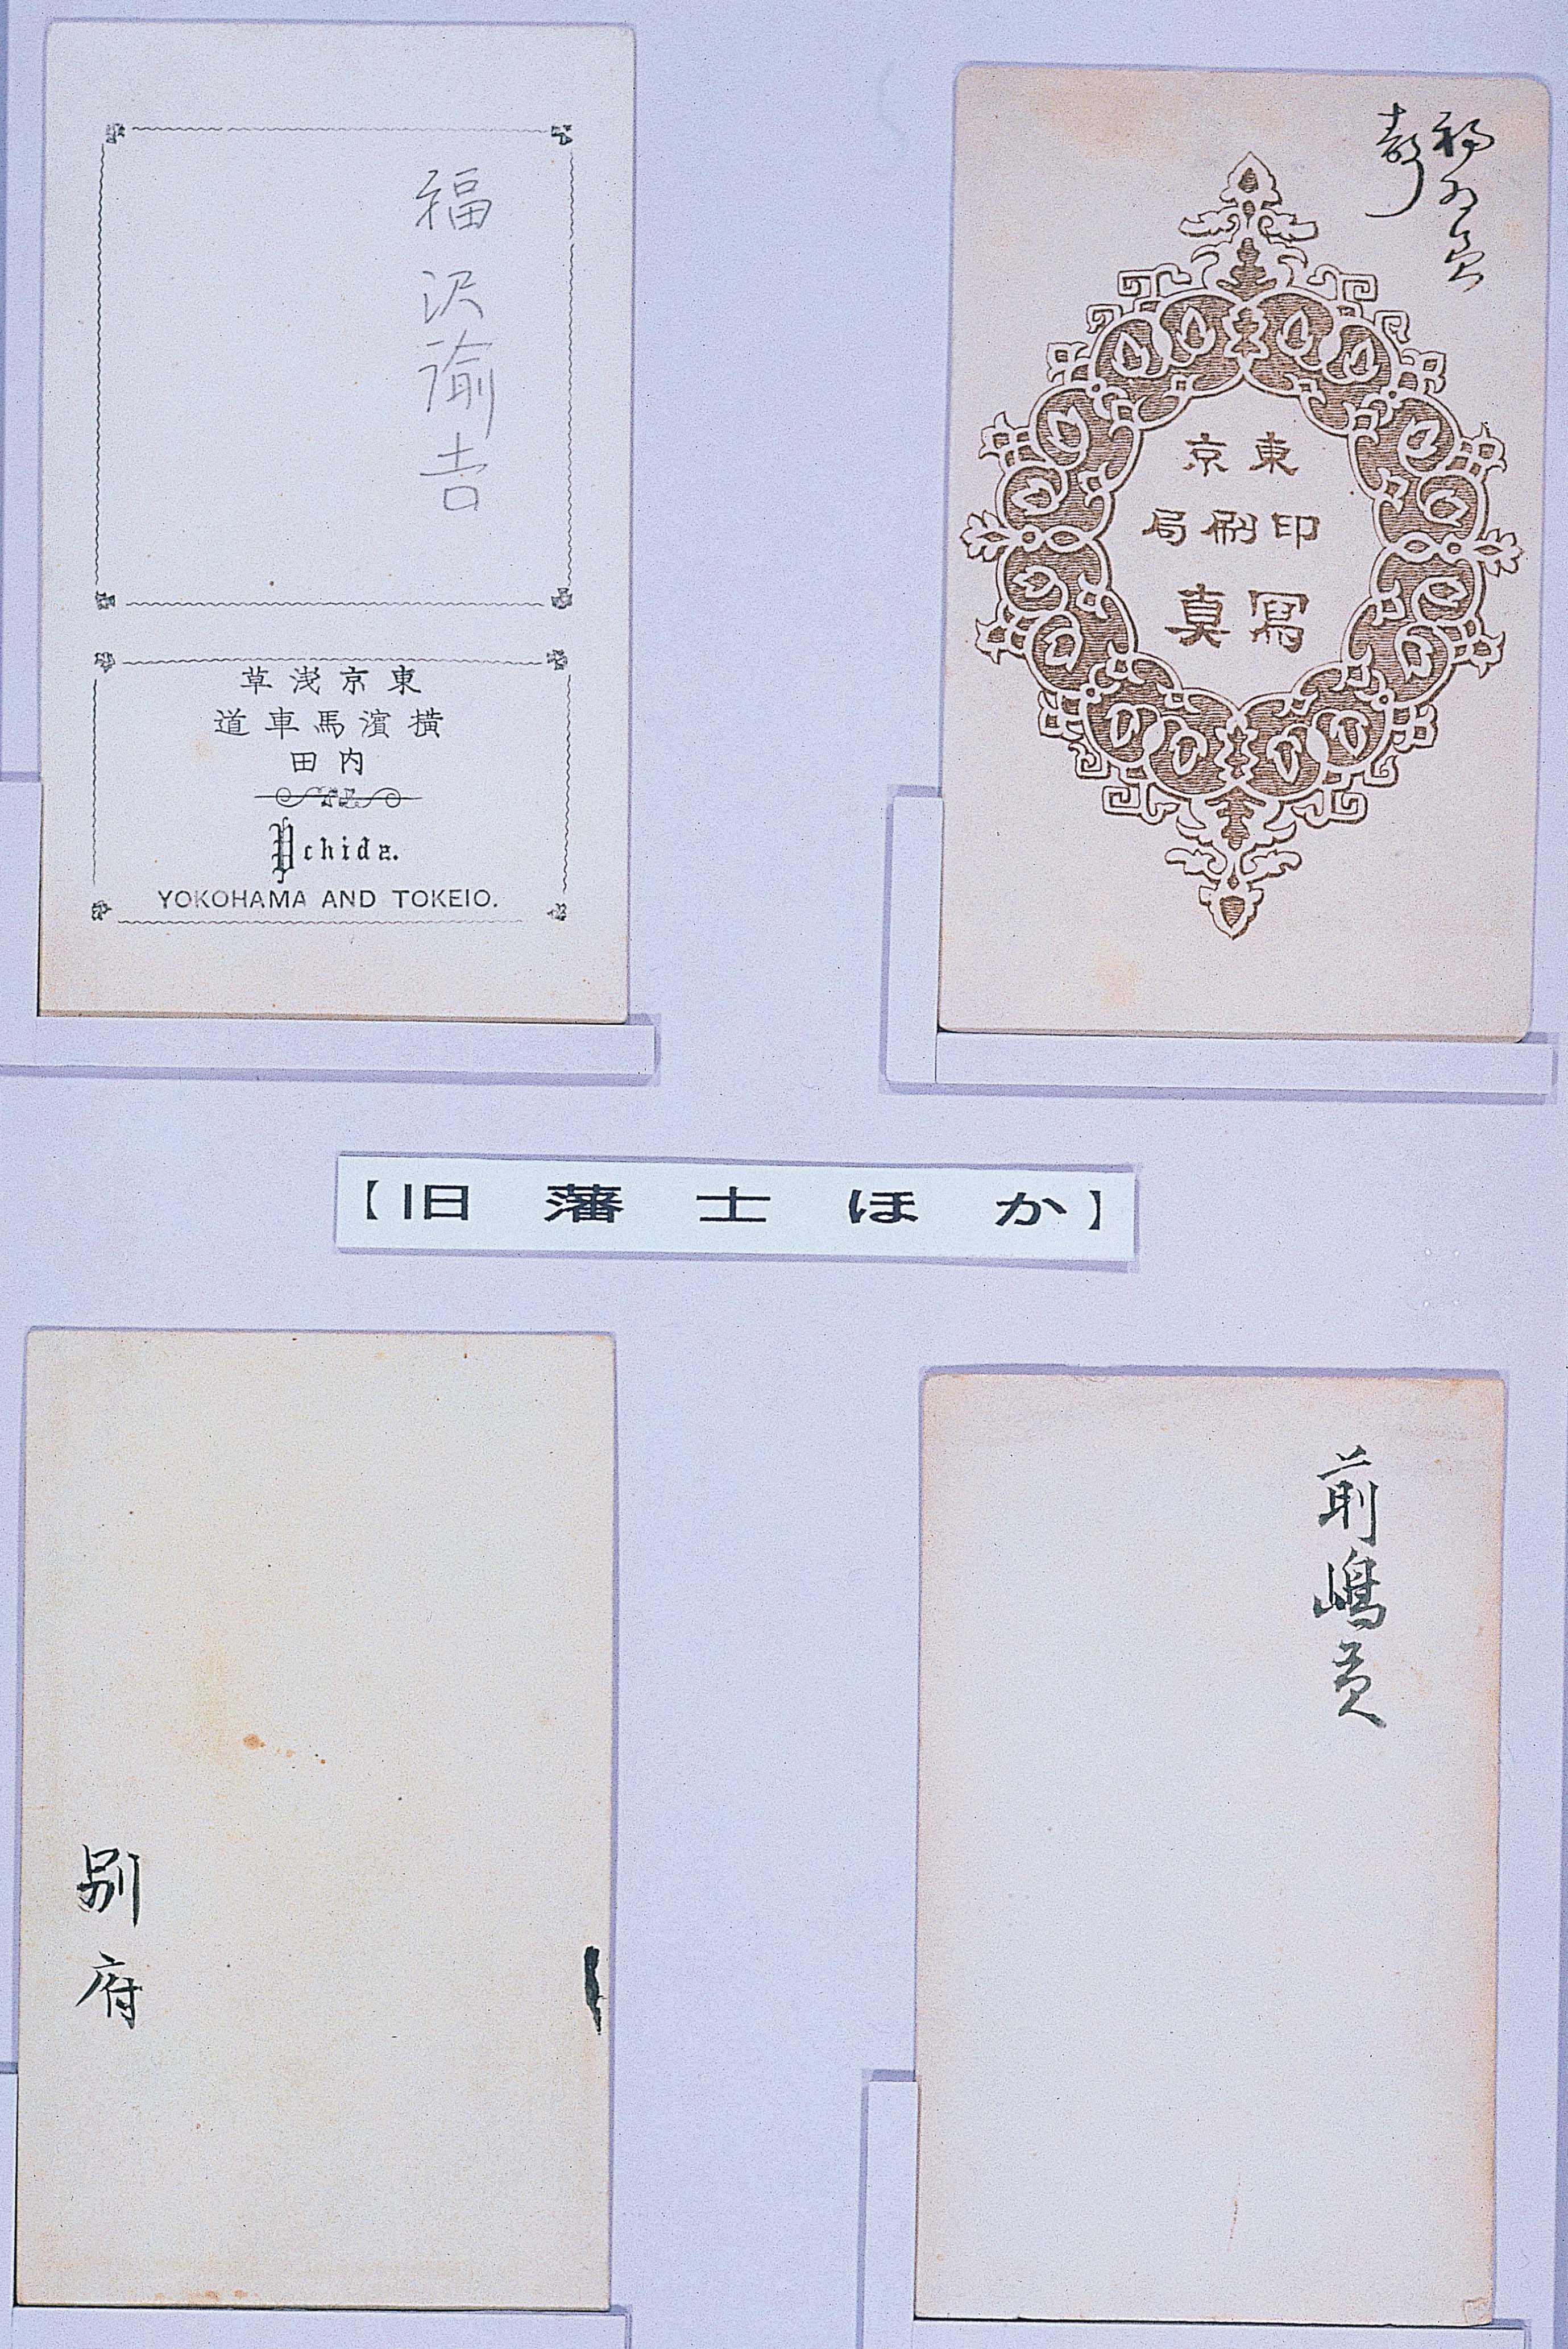 福沢諭吉
東京淺草
横濱馬車道
内田
Uchida.
YOKOHAMA AND TOKEIO.
東京
印刷局
寫真
【旧藩士ほか】
別府
前嶋